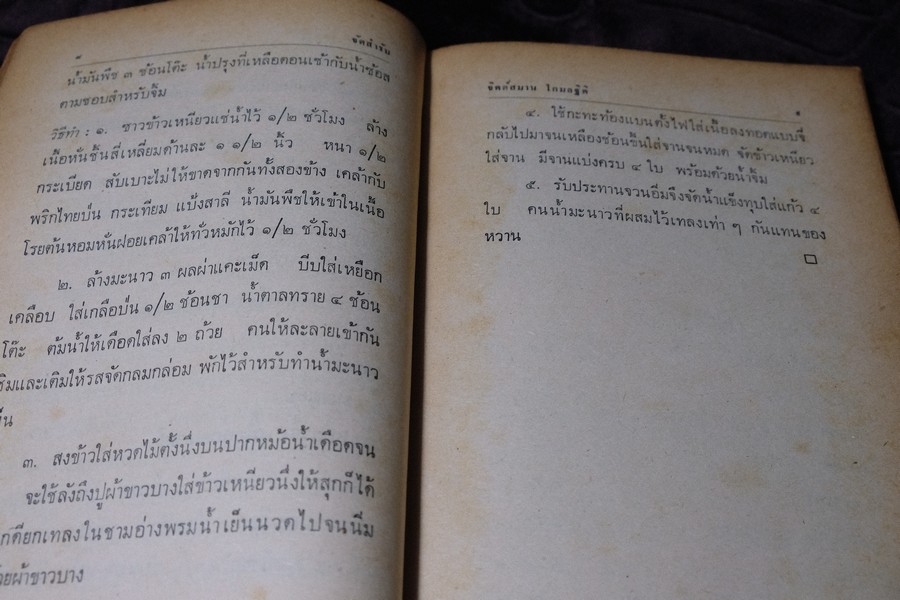 ๘
จัดสำรับ
น้ำมันพืช ๓ ช้อนโต๊ะ น้ำปรุงที่เหลือตอนเช้ากับน้ำซ้อส
ตามชอบสำหรับจิ้ม
วิธีทำ : ๑. ซาวข้าวเหนียวแช่น้ำไว้ ๑/๒ ชั่วโมง ล้าง
เนื้อหั่นชิ้นสี่เหลี่ยมด้านละ ๑ ๑/๒ นิ้ว หนา ๑/๒
กระเบียด สับเบาะไม่ให้ขาดจากกันทั้งสองข้าง เคล้ากับ
พริกไทยป่น กระเทียม แป้งสาลี น้ำมันพืชให้เข้าในเนื้อ
โรยต้นหอมหั่นฝอยเคล้าให้ทั่วหมักไว้ ๑/๒ ชั่วโมง
๒. ล้างมะนาว ๓ ผลผ่าแคะเม็ด บีบใส่เหยือก
เคลือบ ใส่เกลือป่น ๑/๒ ช้อนชา น้ำตาลทราย ๔ ช้อน
โต๊ะ ต้มน้ำให้เดือดใส่ลง ๒ ถ้วย คนให้ละลายเข้ากัน
ชิมและเติมให้รสจัดกลมกล่อม พักไว้สำหรับทำน้ำมะนาว
๓. สงข้าวใส่หวดไม้ตั้งนึ่งบนปากหม้อน้ำเดือดจน
จะใช้ลังถึงปูผ้าขาวบางใส่ข้าวเหนียวนึ่งให้สุกก็ได้
เทลงในชามอ่างพรมน้ำเย็นนวดไปจนนิ่ม
ผ้าขาวบาง
จิตต์สมาน โกมลฐิติ
๙
๔. ใช้กะทะท้องแบนตั้งไฟใส่เนื้อลงทอดแบบจี่
กลับไปมาจนเหลืองช้อนขึ้นใส่จานจนหมด จัดข้าวเหนียว
ใส่จาน มีจานแบ่งครบ ๔ ใบ พร้อมด้วยน้ำจิ้ม
๕. รับประทานจวนอิ่มจึงจัดน้ำแข็งทุบใส่แก้ว ๔
ใบ คนน้ำมะนาวที่ผสมไว้เทลงเท่า ๆ กันแทนของ
หวาน